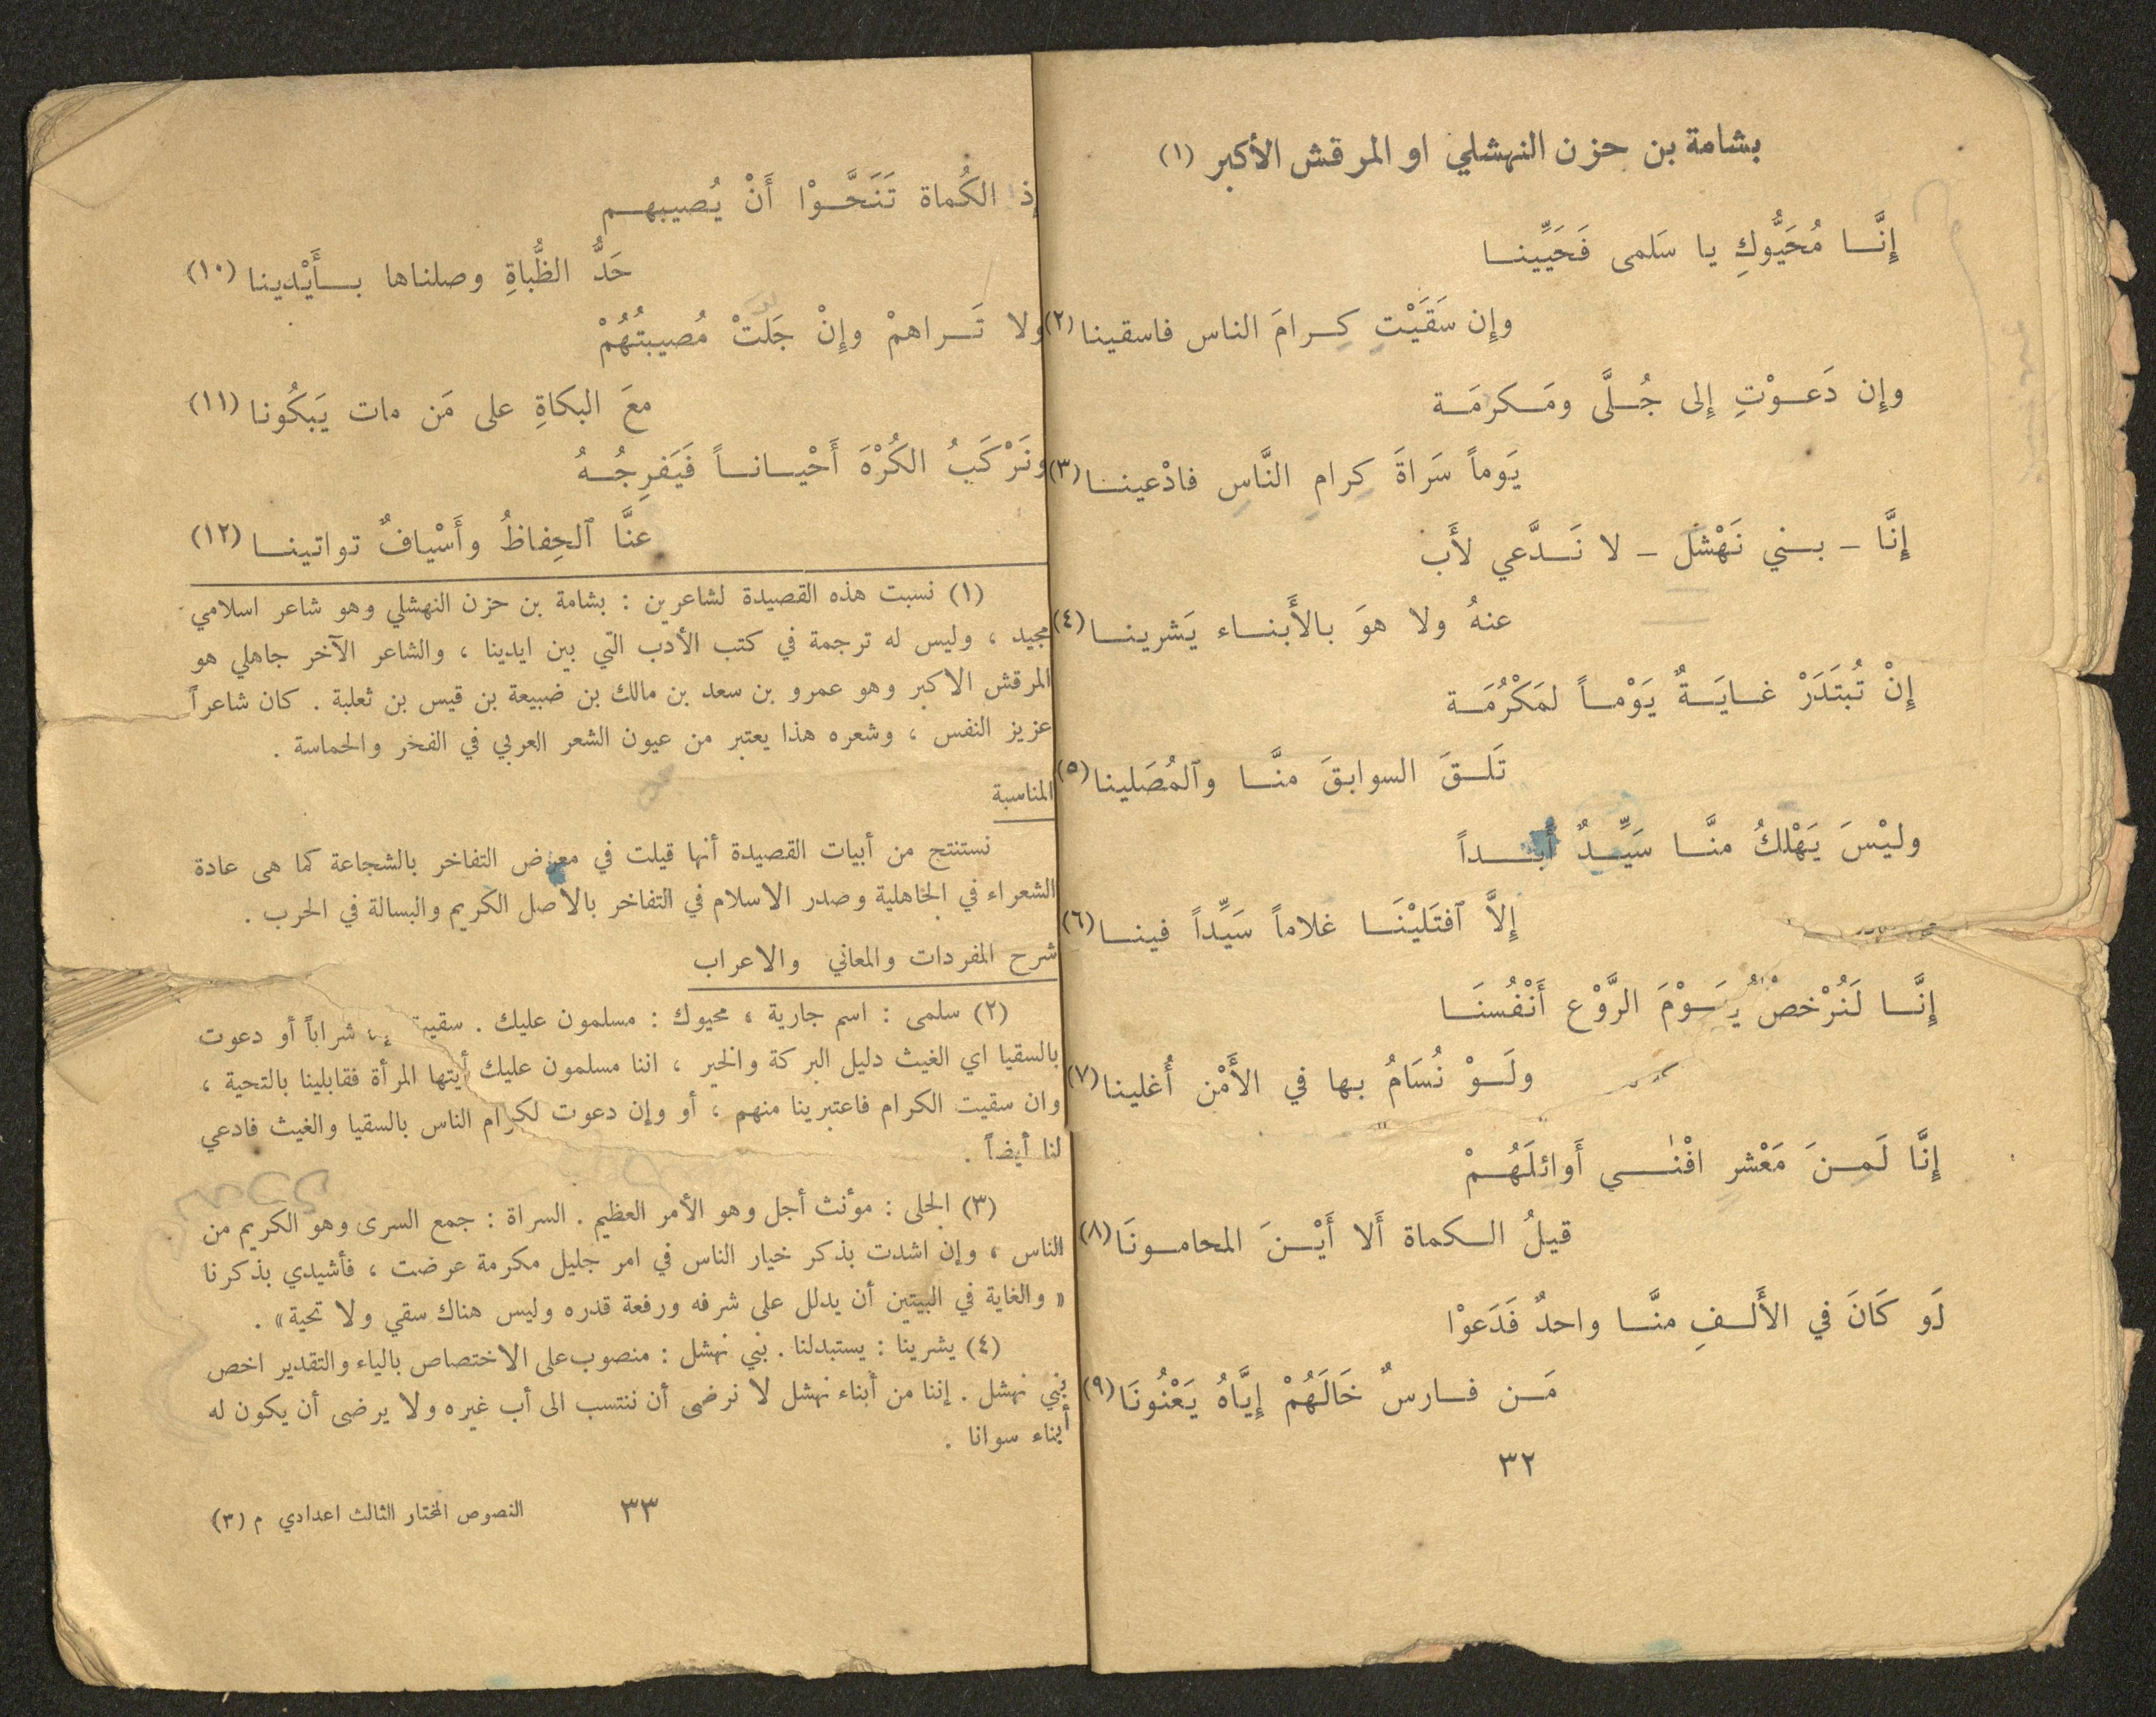 بشامة بن حزن النهشلي او المرقش الأكبر (١)
إِنَّا مُحَيُّوكِ يا سَلمى فَحَيِّينا
وإِن سَقَيْتِ كِرامَ الناس فاسقينا (٢)
وإِن دَعوْتِ إِلى جُلَّى ومَكرمَة
يَوماً سَراةَ كِرامِ النَّاسِ فادْعينا (٣)
إِنَّا - بني نَهْشَل - لا نَدَّعي لأَب
عنهُ ولا هوَ بالأَبناء يَشرينا (٤)
إِنْ تُبتَدَرْ غايَةٌ يَوْماً لمَكْرُمَة
تَلقَ السوابقَ منَّا وٱلمُصَلينا (٥)
وليْسَ يَهْلكُ منَّا سَيِّدٌ أَبداً
إِلاَّ ٱفتَلَيْنَا غلاماً سَيِّداً فينا (٦)
إِنَّا لَنُرْخصُ يَوْمَ الرَّوْع أَنْفُسنَا
ولَوْ نُسَامُ بها في الأَمْن أُغلينا (٧)
إِنَّا لَمِنَ مَعْشرِ افْنٰى أَوائلَهُمْ
قيلُ الكماة أَلا أَيْنَ المحامونَا (٨)
لَو كَانَ في الأَلفِ منَّا واحدٌ فَدَعوْا
مَن فارسٌ خَالَهُمْ إِيَّاهُ يَعْنُونَا (٩)
٣٢
إِذ الكُماة تَنَحَّوْا أَنْ يُصيبهم
حَدُّ الظُّباةِ وصلناها بأَيْدينا (١٠)
ولا تَراهمْ وإِنْ جَلتْ مُصيبتُهُمْ
معَ البكاةِ على مَن مات يَبكُونا (١١)
ونَرْكَبُ الكُرْهَ أَحْياناً فَيَفرِجُهُ
عنَّا ٱلحِفاظُ وأَسْيافٌ تواتينا (١٢)
(١) نسبت هذه القصيدة لشاعرين : بشامة بن حزن النهشلي وهو شاعر اسلامي
مجيد ، وليس له ترجمة في كتب الأدب التي بين ايدينا ، والشاعر الآخر جاهلي هو
المرقش الاكبر وهو عمرو بن سعد بن مالك بن ضبيعة بن قيس بن ثعلبة . كان شاعراً
عزيز النفس ، وشعره هذا يعتبر من عيون الشعر العربي في الفخر والحماسة .
المناسبة
نستنتج من أبيات القصيدة أنها قيلت في معرض التفاخر بالشجاعة كما هى عادة
الشعراء في الجاهلية وصدر الاسلام في التفاخر بالاصل الكريم والبسالة في الحرب .
شرح المفردات والمعاني والاعراب
(٢) سلمى : اسم جارية ، محيوك : مسلمون عليك . شراباً أو دعوت
بالسقيا اي الغيث دليل البركة والخير ، اننا مسلمون عليك أيتها المرأة فقابلينا بالتحية ،
وان سقيت الكرام فاعتبرينا منهم ، أو وإن دعوت لكرام الناس بالسقيا والغيث فادعي
لنا أيضاً .
(٣) الجلى : مؤنث أجل وهو الأمر العظيم . السراة : جمع السرى وهو الكريم من
الناس ، وإن اشدت بذكر خيار الناس في امر جليل مكرمة عرضت ، فأشيدي بذكرنا
« والغاية في البيتين أن يدلل على شرفه ورفعة قدره وليس هناك سقي ولا تحية» .
(٤) يشرينا : يستبدلنا . بني نهشل : منصوب على الاختصاص بالياء والتقدير اخص
بني نهشل . إننا من أبناء نهشل لا نرضى أن ننتسب الى أب غيره ولا يرضى أن يكون له
أبناء سوانا .
٣٣
النصوص المختار الثالث اعدادي م (٣)